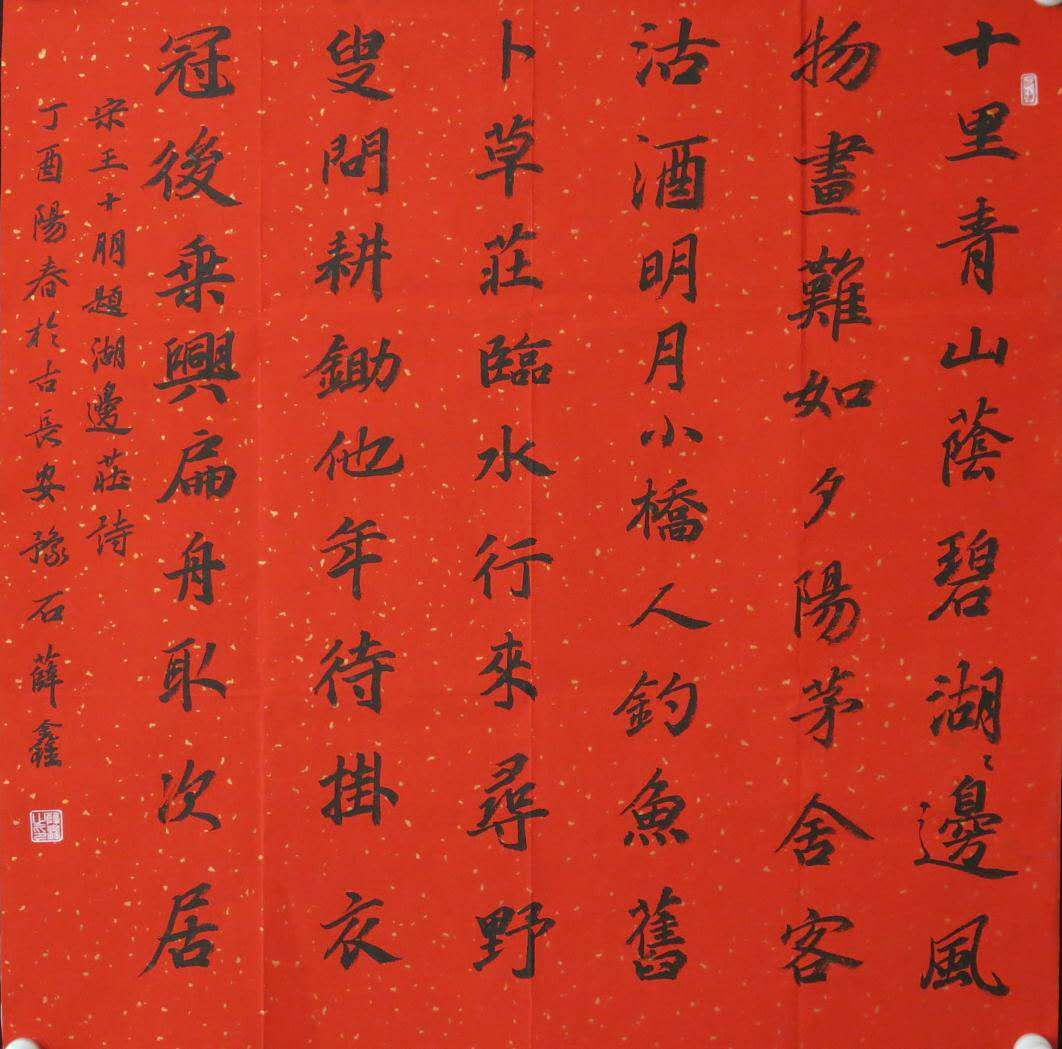 十里青山蔭碧湖〻邊風
物畫難如夕陽茅舍客
沽酒明月小橋人釣魚舊
卜草莊臨水行來尋野
叟問耕鋤他年待掛衣
冠後乘興扁舟取次居
宋王十朋題湖邊莊詩
丁酉陽春於古長安豫石薛鑫